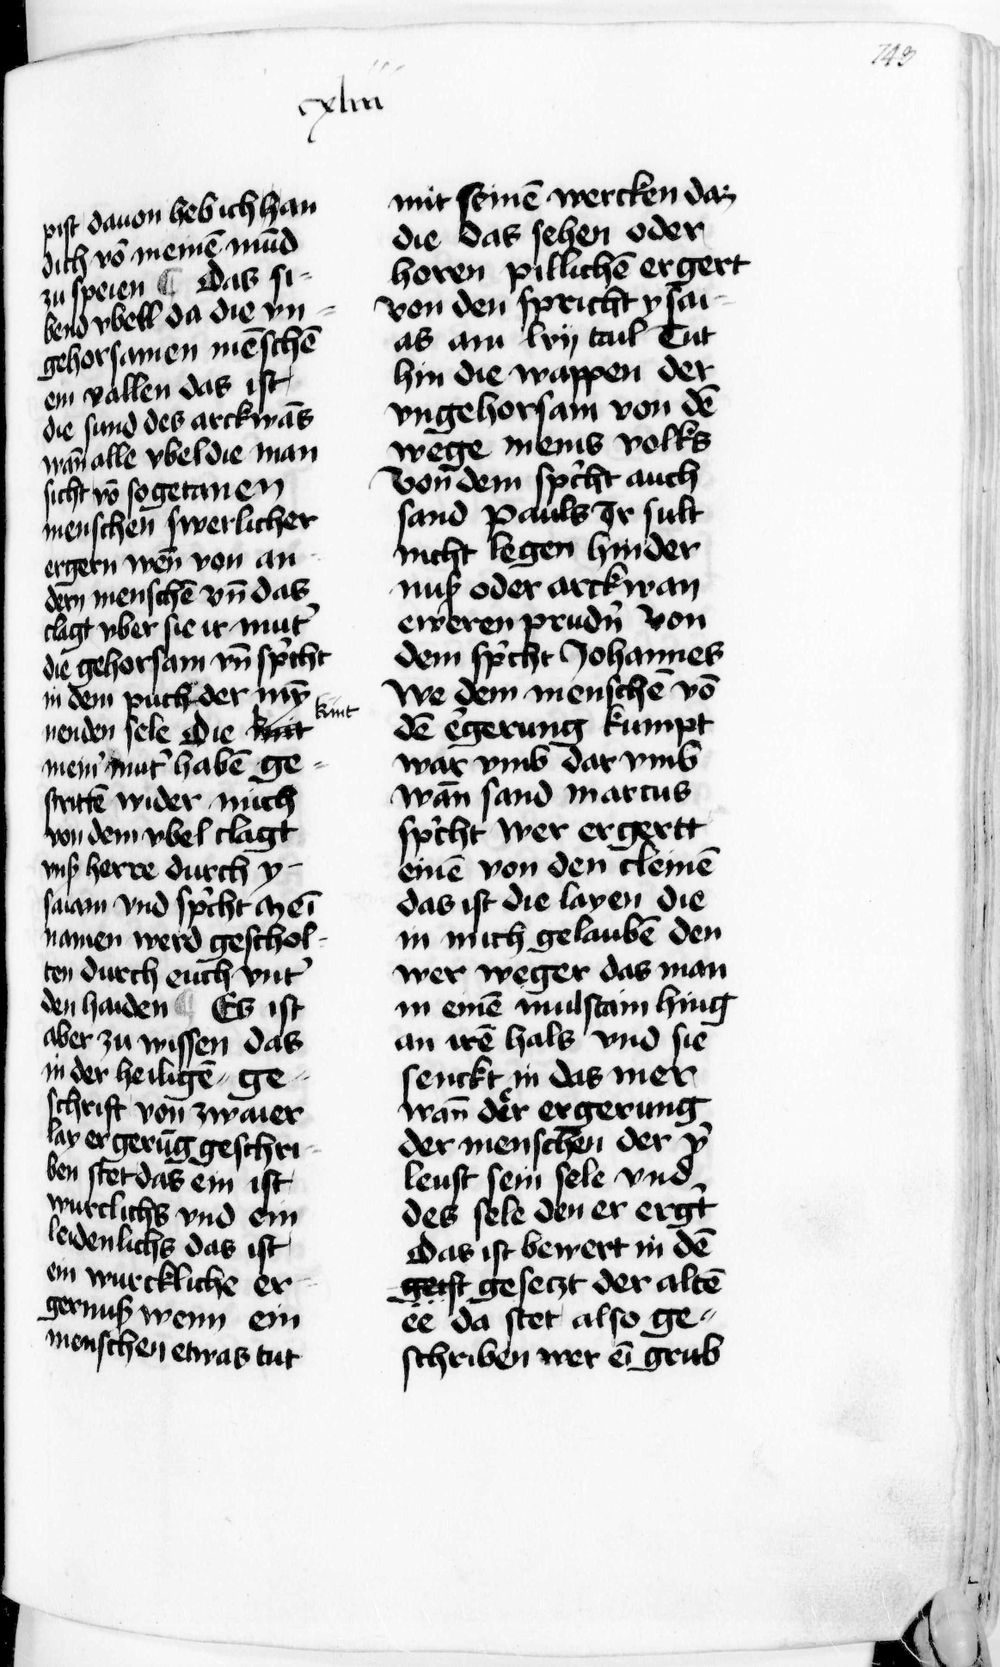 143
cxliii
pist dauon heb ich han
dich vō meinē mūd
zu speien ¶ Das si-
bend vbell da die vn-
gehorsamen mēschē
ein vallen das ist
die sund des arckwās
wān alle vbel die man
sicht vō sogetanen
menschen swerlicher
ergern wēn von an
dern menschē vn̄ das
clagt vber sie ir mut'
die gehorsam vn̄ sp'cht
in dem puch der myn̄
nenden sele Die kint kint
mein' mut' habē ge-
strittē wider mich
von dem vbel clagt
vnß herre durch y-
saiam vnd sp'cht Meī
namen werd geschol-
ten durch euch vnt'
den haiden ¶ Es ist
aber zu wissen das
in der heiligē ge-
schrift von zwaier
lay ergerūg geschri-
ben stet das ein ist
wurclichs vnd ein
leidenlichs das ist
ein wurckliche er-
gernuß wenn ein
menschen etwas tut
mit seinē wercken daz
die das sehen oder
horen pillichē ergert
von den spricht ysai-
as am lvij caul Tut
hin die wappen der
vngehorsam von dē
wege meins volks
Von dem sp'cht auch
sand Pauls Ir sult
nicht legen hinder
nuß oder arckwan
eweren prudn' Von
dem sp'cht Johannes
We dem menschē vō
dē e'gerung kumpt
war vmb dar vmb
wān sand marcus
sp'cht wer ergertt
einē von den cleinē
das ist die layen die
in mich gelaubē den
wer weger das man
in einē mulstain hing
an irē hals vnd sie
senckt in das mer
wan̄ der ergerung
der menschen der v'
leust sein sele vnd
des sele den er ergt'
Das ist bewert in dē
geist gesetzt der altē
ee da stet also ge-
schriben wer eī grub